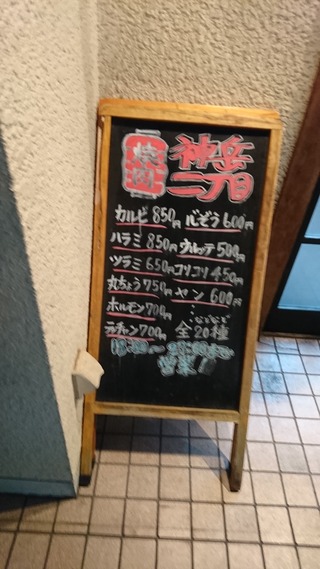 焼肉
神岳
二丁目
カルビ 850円 心ぞう 600円
ハラミ 850円 ウルッテ 500円
ツラミ 650円 コリコリ 450円
丸ちょう 750円 ヤン 600円
ホルモン 700円
テッチャン 700円 全20種
営業!